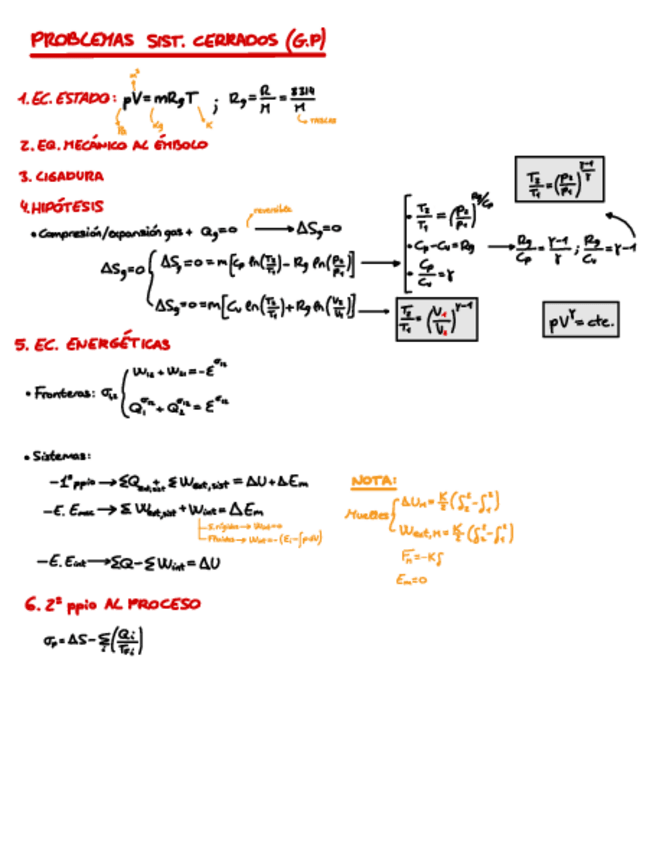 PROBLEMAS SIST. CERRADOS (G.P)
m³
1. EC. ESTADO: pV=mRgT ; Rg = R/M = 8314/M
Pa Kg K TABLAS
2. EQ. MECÁNICO AL ÉMBOLO
3. LIGADURA
4. HIPÓTESIS
reversible
• Compresión/expansión gas + Qg=0 → ΔSg=0
ΔSg=0 { ΔSg=0=m[Cp ln(T2/T1) - Rg ln(P2/P1)] →
ΔSg=0=m[Cv ln(T2/T1)+Rg ln(V2/V1)] →
• T2/T1 = (P2/P1)^Rg/Cp
• Cp-Cv=Rg → Rg/Cp = γ-1/γ ; Rg/Cv = γ-1
• Cp/Cv = γ
T2/T1 = (P2/P1)^γ-1/γ
T2/T1 = (V1/V2)^γ-1
pV^γ = cte.
5. EC. ENERGÉTICAS
• Fronteras: σ12 { W12 + W21 = -E^σ12
Q1^σ12 + Q2^σ12 = E^σ12
• Sistemas:
-1º ppio → ΣQext,sist + ΣWext,sist = ΔU+ΔEm
-E. Emec → Σ Wext,sist + Wint = ΔEm
S.rígido → Wint=0
-E. Eint → ΣQ-ΣWint = ΔU
NOTA:
Muelles { ΔUM = K/2 (∫2²-∫1²)
Wext,M = K/2 (∫2²-∫1²)
Fn=-K∫
Em=0
6. 2º ppio AL PROCESO
σp = ΔS - Σi(Qi/TFi)